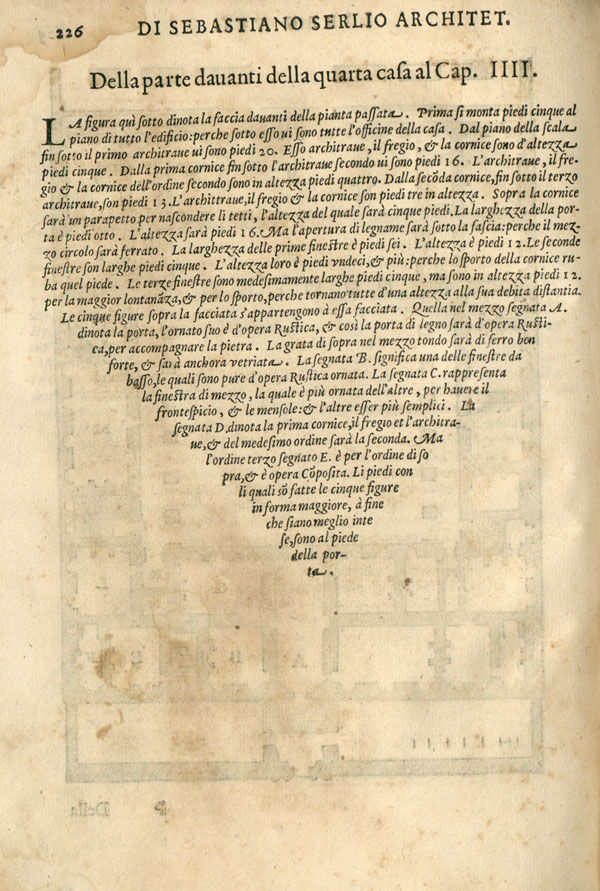 226
DI SEBASTIANO SERLIO ARCHITET.
Della parte dauanti della quarta casa al Cap. IIII.
LA figura quì sotto dinota la faccia dauanti della pianta passata. Prima si monta piedi cinque al
piano di tutto l'edificio: perche sotto esso ui sono tutte l'officine della casa. Dal piano della scala
fin sotto il primo architraue ui sono piedi 20. Esso architraue, il fregio, & la cornice sono d'altezza
piedi cinque. Dalla prima cornice fin sotto l'architraue secondo ui sono piedi 16. L'architraue, il fre-
gio & la cornice dell'ordine secondo sono in altezza piedi quattro. Dalla secōda cornice, fin sotto il terzo
architraue, son piedi 13. L'archittraue, il fregio & la cornice son piedi tre in altezza. Sopra la cornice
sarà un parapetto per nascondere li tetti, l'altezza del quale sarà cinque piedi. La larghezza della por-
ta è piedi otto. L'altezza sarà piedi 16. Ma l'apertura di legname sarà sotto la fascia: perche il mez-
zo circolo sarà ferrato. La larghezza delle prime finestre è piedi sei. L'altezza è piedi 12. Le seconde
finestre son larghe piedi cinque. L'altezza loro è piedi vndeci, & più: perche lo sporto della cornice ru-
ba quel piede. Le terze finestre sono medesimamente larghe piedi cinque, ma sono in altezza piedi 12.
per la maggior lontanāza, & per lo sporto, perche tornano tutte d'una altezza alla sua debita distantia.
Le cinque figure sopra la facciata s'appartengono à essa facciata. Quella nel mezzo segnata A.
dinota la porta, l'ornato suo è d'opera Rustica, & così la porta di legno sarà d'opera Rusti-
ca, per accompagnare la pietra. La grata di sopra nel mezzo tondo sarà di ferro ben
forte, & sarà anchora vetriata. La segnata B. significa una delle finestre da
basso, le quali sono pure d'opera Rustica ornata. La segnata C. rappresenta
la finestra di mezzo, la quale è più ornata dell'altre, per hauere il
frontespicio, & le mensole: & l'altre esser più semplici. La
segnata D. dinota la prima cornice, il fregio et l'architra-
ue, & del medesimo ordine sarà la seconda. Ma
l'ordine terzo segnato E. è per l'ordine di so
pra, & è opera Cōposita. Li piedi con
li quali sō fatte le cinque figure
in forma maggiore, à fine
che siano meglio inte
se, sono al piede
della por-
ta.